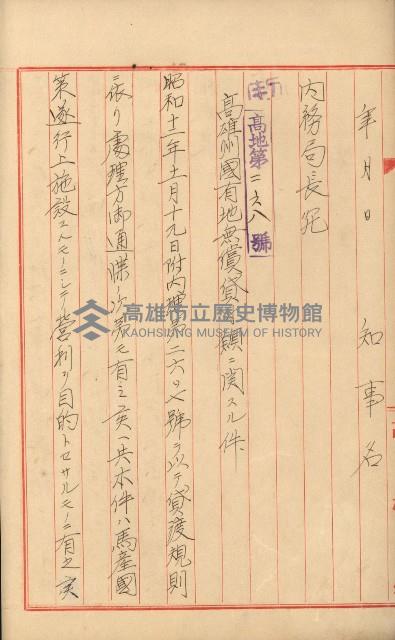 年月日
知事名
内務局長宛
高地第二六八號
高雄州國有地無償貸付願ニ関スル件
昭和十二年十一月十九日附内地第二六〇七號ヲ以テ貸渡規則
ニ依リ處理方御通牒ノ次第モ有之候へ共本件ハ馬産國
策遂行上施設スルモノニシテ營利ヲ目的トセサルモノニ有之候
高雄市立歷史博物館
KAOHSIUNG MUSEUM OF HISTORY